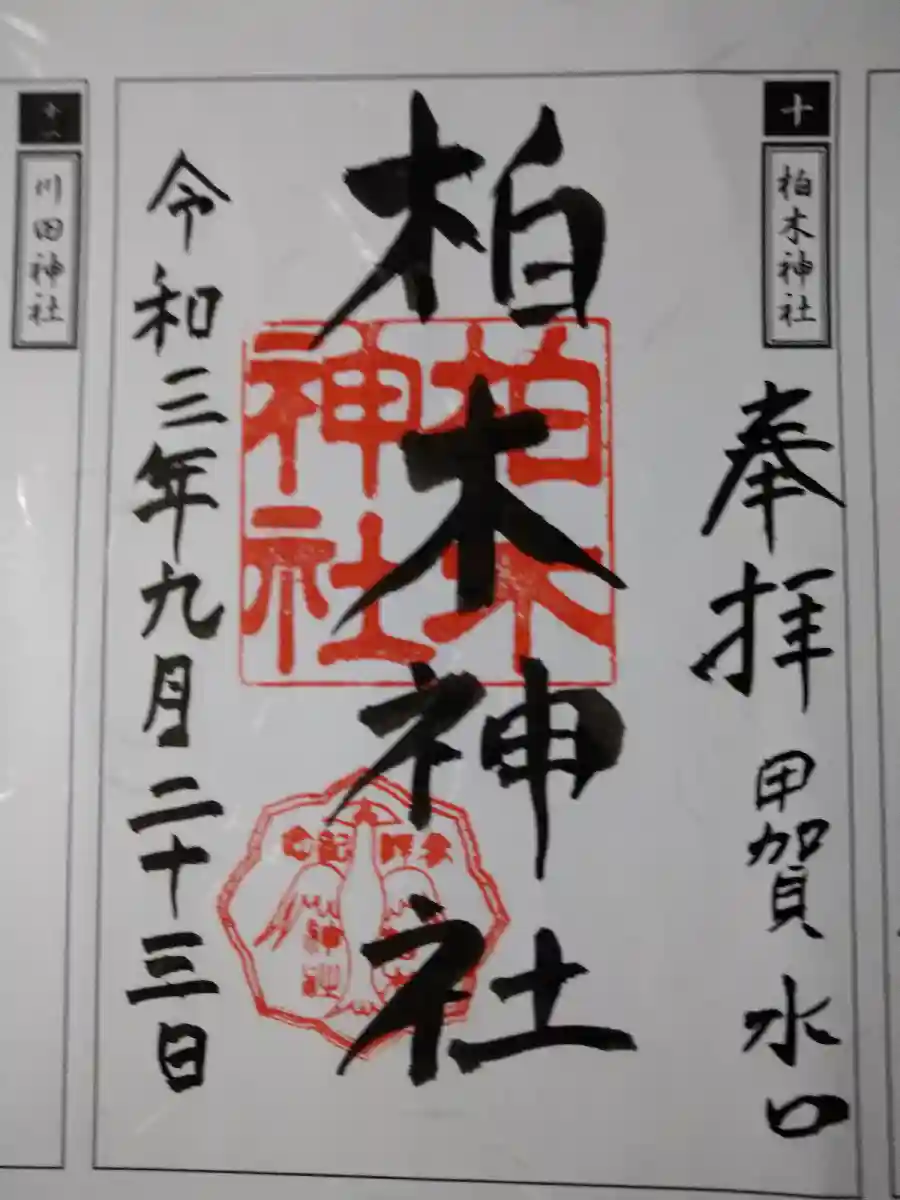 十
柏木神社
奉拝 甲賀 水口
柏木神社
柏木
神社
参拝記念
神社
令和三年九月二十三日
十一
川田神社